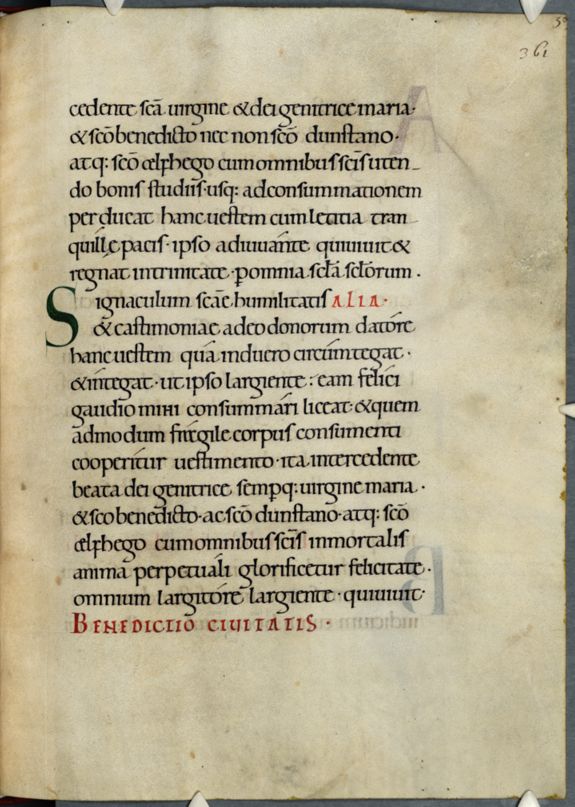 361
cedente scā uirgine & dei genitrice maria·
& scō benedicto nec non scō dunstano·
atq: scō ælphego cum omnibus scīs uten-
do bonis studiis·usq: ad consummationem
perducat hanc uestem cum letitia tran
quillę pacis· ipso adiuuante qui uiuit &
regnat in trinitate· ꝑ omnia sclā sclōrum·
Signaculum scāe humilitatis ALIA·
& castimoniae a deo donorum datore
hanc uestem qua induero circumtegat·
& integat· ut ipso largiente: eam felici
gaudio mihi consummari liceat· & quem
admodum fragile corpus consumenti
cooperitur uestimento· ita intercedente
beata dei genitrice sempq: uirgine maria·
& sco benedicto· ac scō dunstano· atq: scō
ælphego cum omnibus scīs inmortalis
anima perpetuali glorificetur felicitate·
omnium largitore largiente· qui uiuit·
BENEDICTIO CIUITATIS·